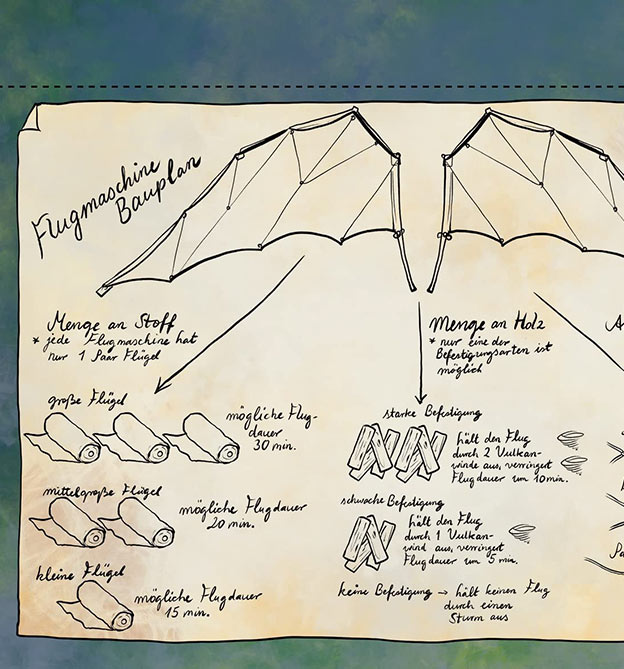 Flugmaschine
Bauplan
Menge an Stoff
* jede Flugmaschine hat
nur 1 Paar Flügel
große Flügel
mögliche Flug-
dauer
30 min.
mittelgroße Flügel
mögliche Flugdauer
20 min.
kleine Flügel
mögliche Flugdauer
15 min.
Menge an Holz
* nur eine der
Befestigungsarten ist
möglich
starke Befestigung
hält den Flug
durch 2 Vulkan-
winde aus, verringert
Flugdauer um 10 min.
schwache Befestigung
hält den Flug
durch 1 Vulkan-
wind aus, verringert
Flugdauer um 5 min.
keine Befestigung → hält keinen Flug
durch einen
Sturm aus